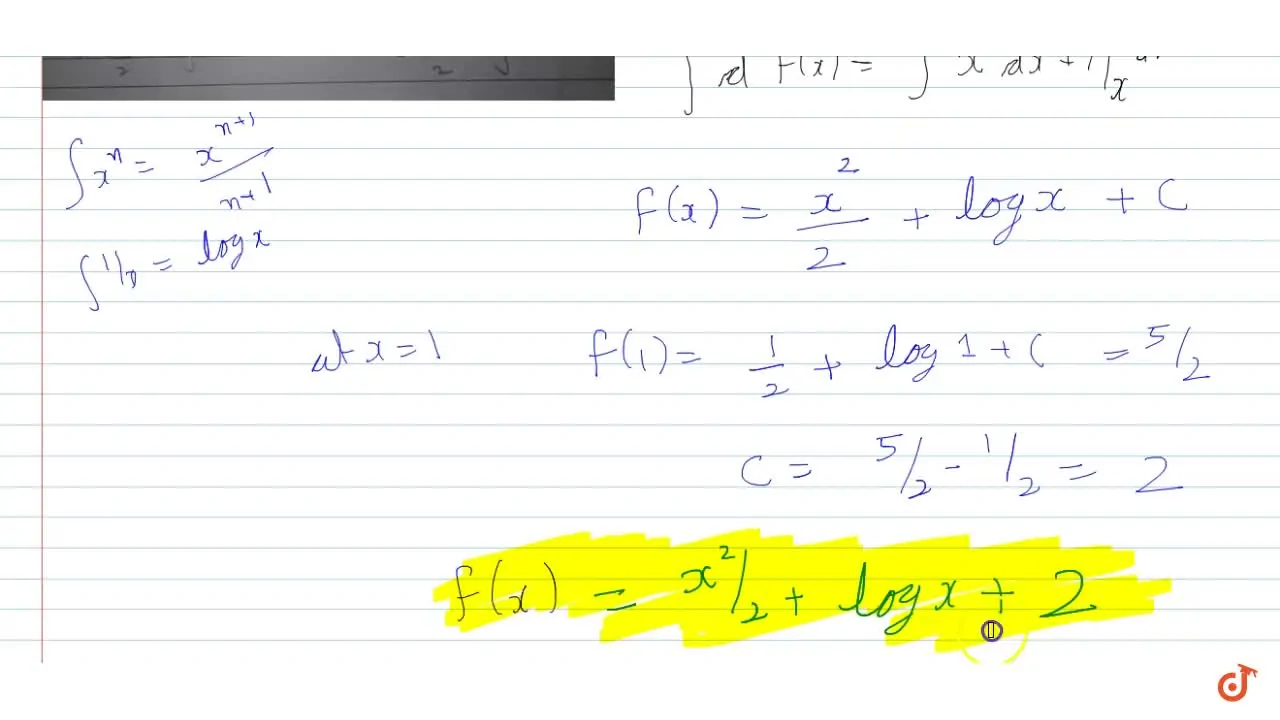 ∫ d f(x) = ∫ x dx + 1/x
∫xⁿ = xⁿ⁺¹/n+1
f(x) = x²/2 + log x + C
∫1/x = log x
at x = 1 f(1) = 1/2 + log 1 + C = 5/2
C = 5/2 - 1/2 = 2
f(x) = x²/2 + log x + 2